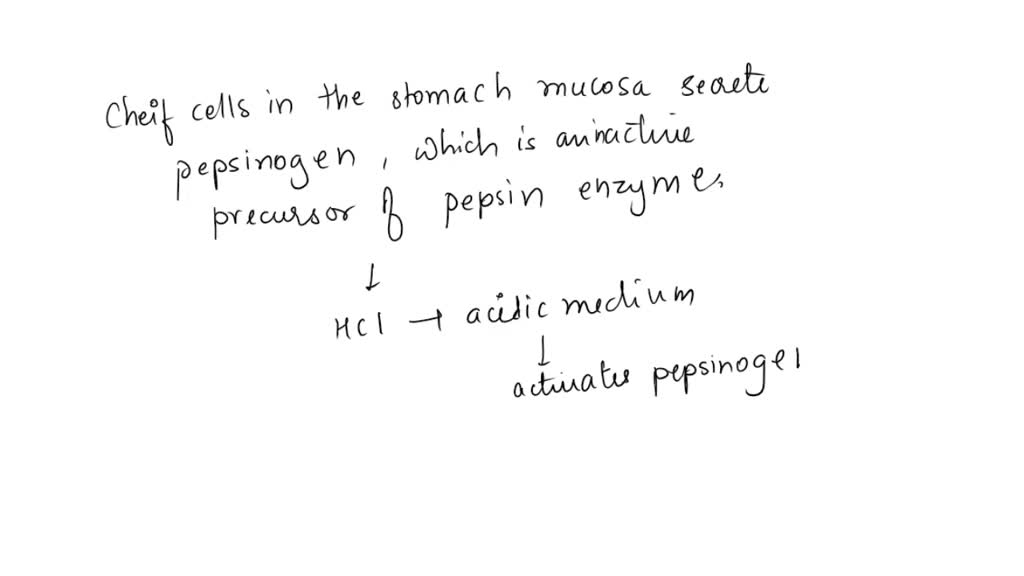 Cheif cells in the stomach mucosa secrete
pepsinogen, which is an inactive
precursor of pepsin enzyme,
↓
HCl → acidic medium
↓
activates pepsinogel